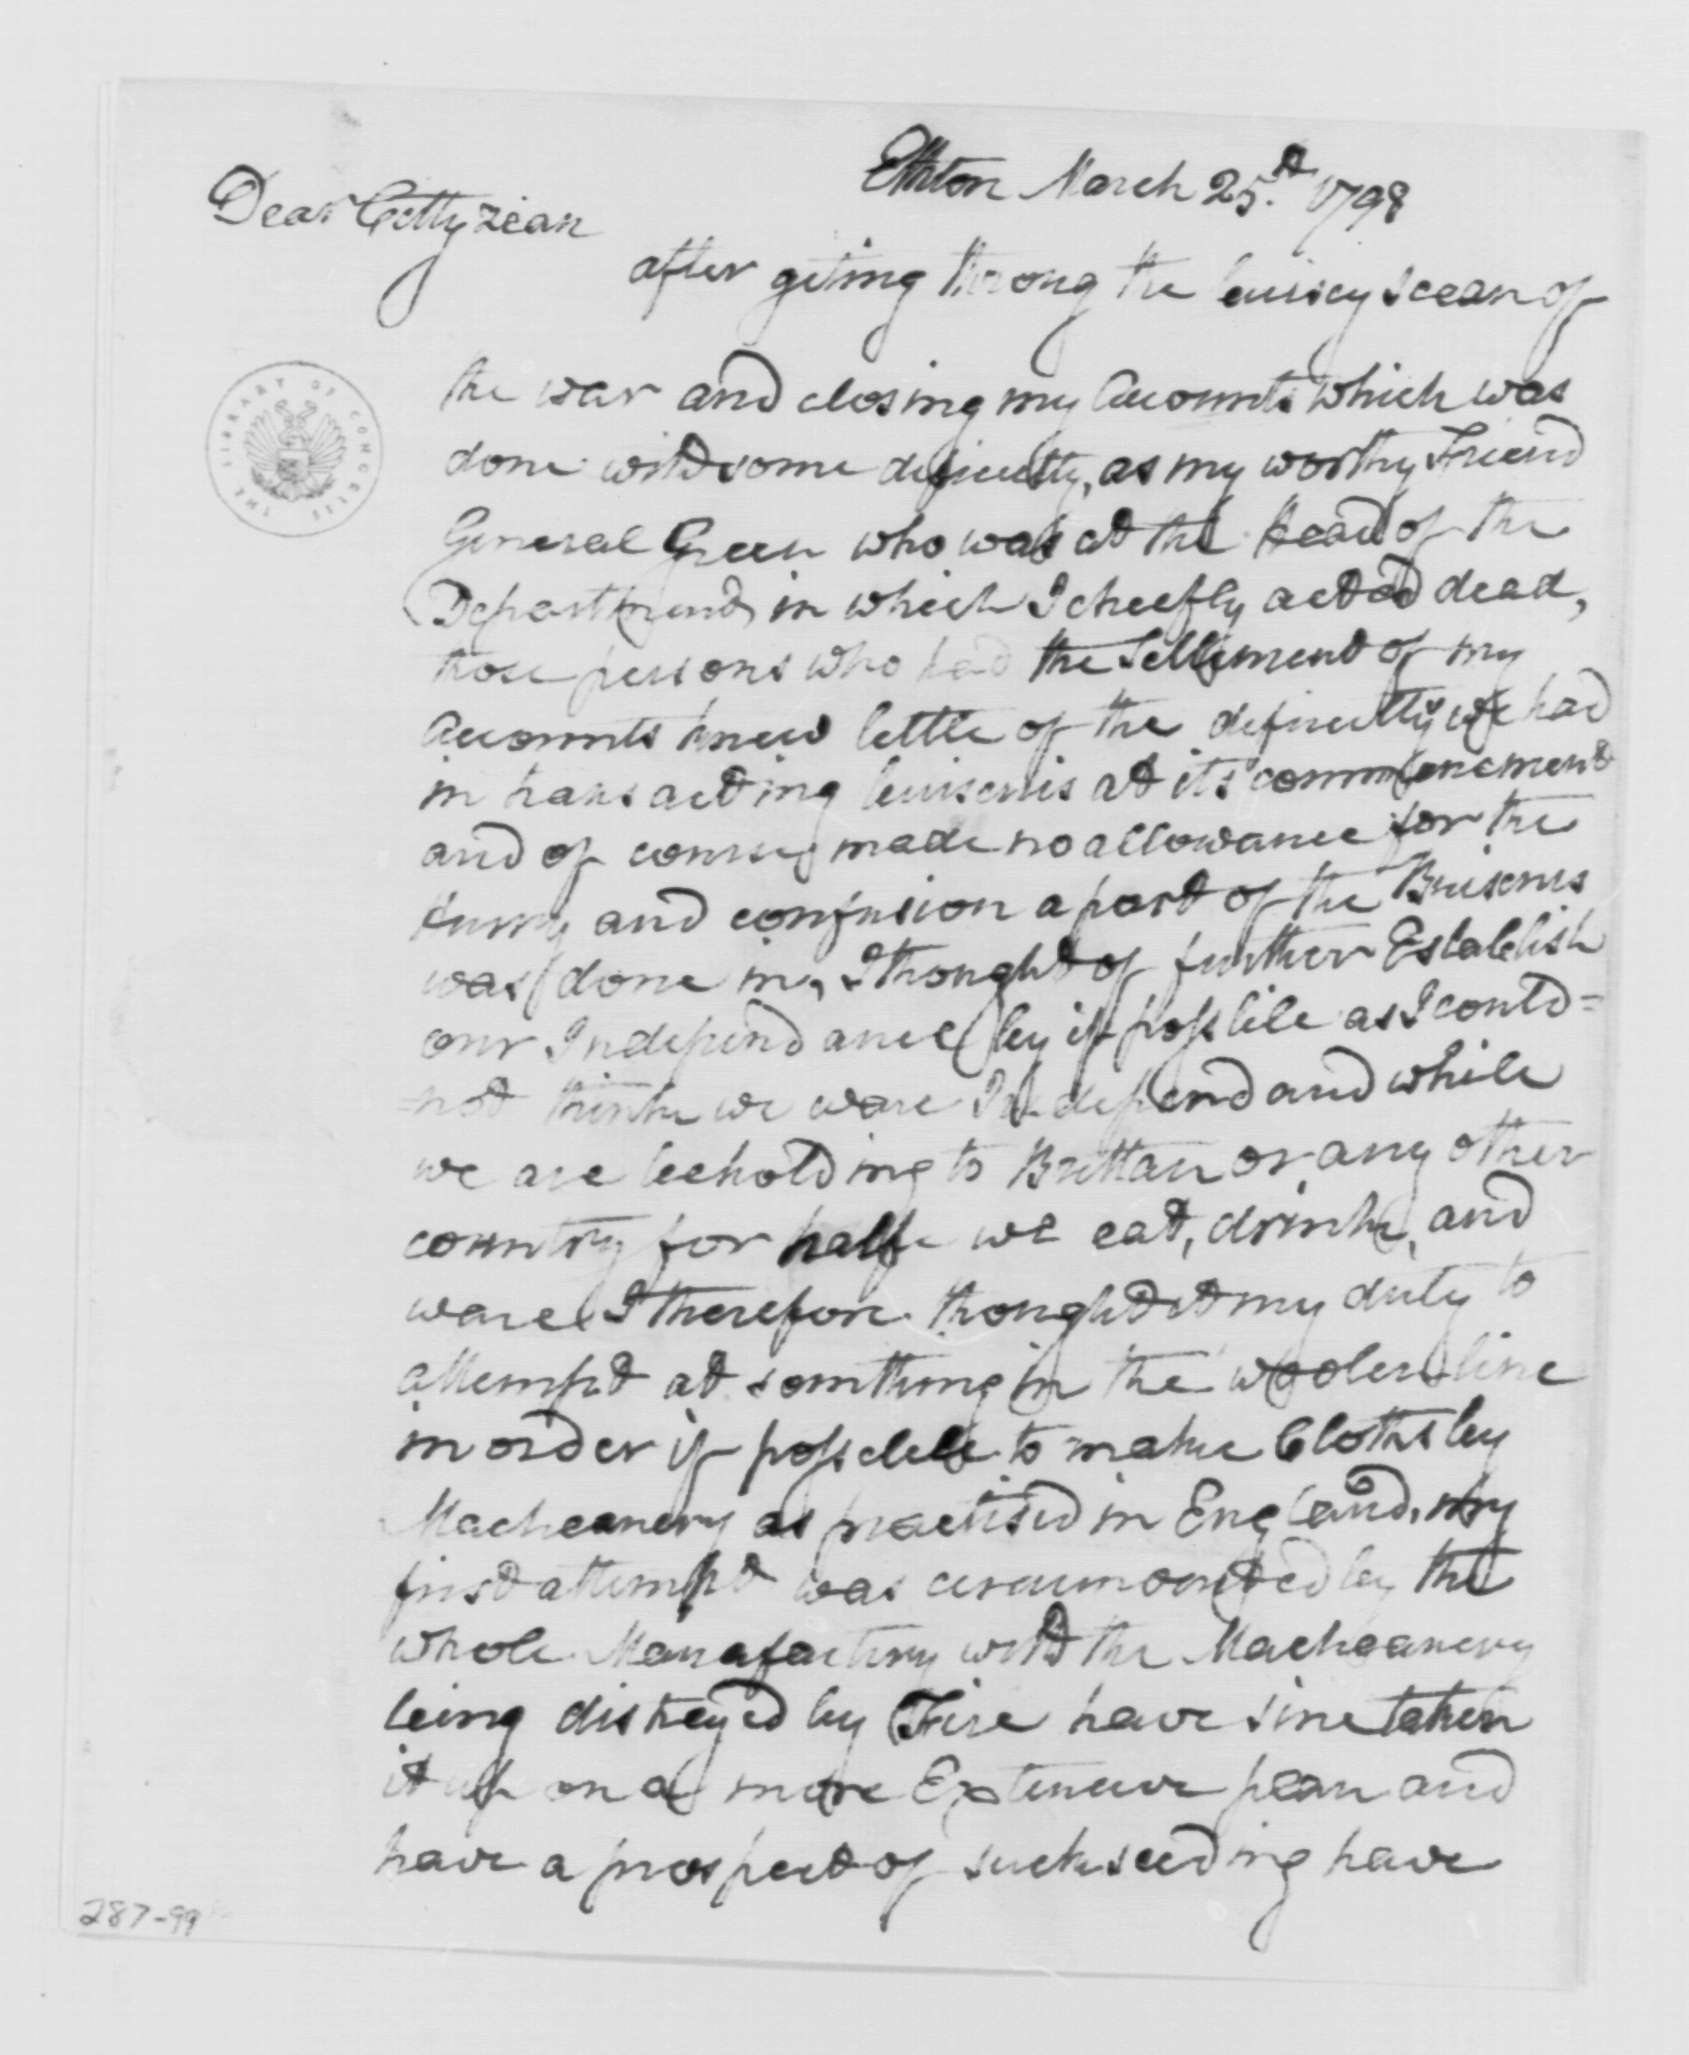 Elkton March 25.th 1798
Dear Cittyzean
after geting throug the buisey scean of
the war and closing my Accounts which was
done with some dificulty, as my worthy Friend
General Green who was at the head of the
Department in which I cheefly acted dead,
those persons who had the Settlement of my
Accounts knew little of the dificulty we had
in transacting buisenis at its commencement
and of course made no allowance for the
hurry and confusion a part of the Buisenis
was done in, I thought of further Establish
our Independance by if possible as I could=
=not think we ware Independand while
we are beholding to Brittan or any other
country for half we eat, drink, and
ware I therefore thought it my duty to
attempt at somthing in the woolen line
in order if possible to make Cloths by
Macheanery as practised in England, my
first attempt was circumvented by the
whole Manafactury with the Macheanery
being distroyed by Fire have sine taken
it up on a more Extencive plan and
have a prospect of suckseeding have
THE LIBRARY OF CONGRESS
287-99